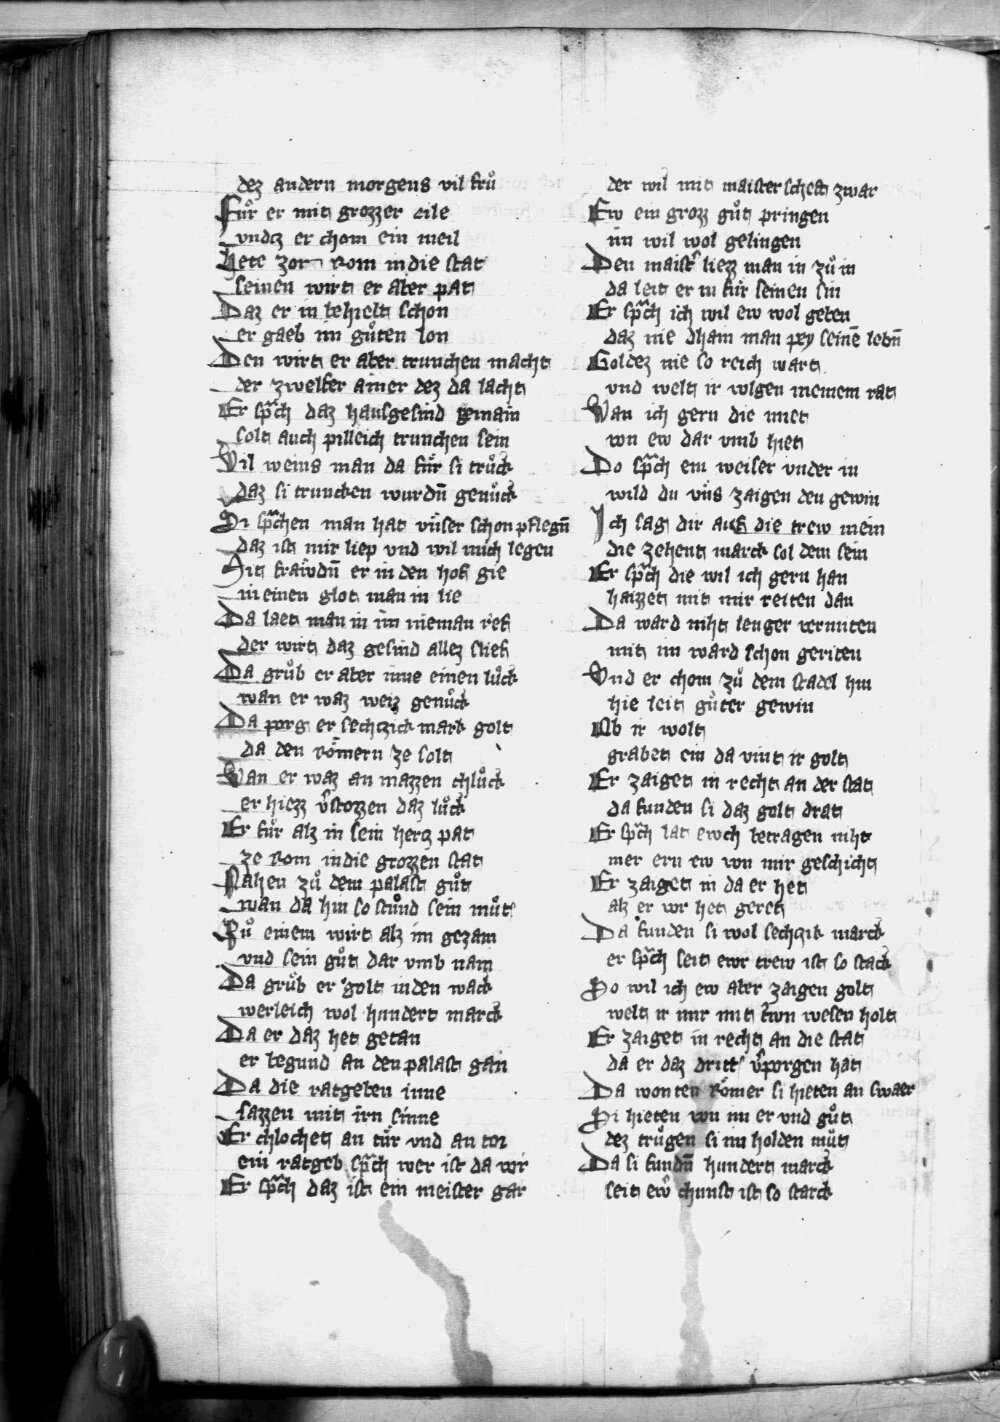 dez andern morgens vil frů
Fůr er mit grozzer eile
vndcz er chom ein meil
hete zorn Rom in die stat
seinen wirt er aber pat
Daz er in behielt schon
er gaeb im gůten lon
Den wirt er aber trunchen macht
der zwelfer ainer dez da lacht
Er sprach daz hausgesind gemain
solt auch pilleich trunchen sein
Vil weins man da fůr si trůck
daz si truncken wurdn̄ genůck
Si sprchen man hat vnser schon pflegn̄
daz ist mir liep vnd wil mich legen
Mit frawdn̄ er in den hof gie
in einen glot man in lie
Da laet man in im nieman rief
der wirt daz gesind allez slief
Da grůb er aber inne einen lůck
wan er waz weiz genůck
Da porg er sechczick mark golt
da den Römern ze solt
Wan er waz an mazzen chlůck
er hiezz v̓stozzen daz lůck
Er fůr alz in sein hercz pat
ze Rom in die grozzen stat
Nahen zů dem palast gůt
wan da hin so stůnd sein můt
Zů einem wirt alz im gezam
vnd sein gůt dar vmb nam
Da grůb er golt in den wack
werleich wol hundert marck
Da er daz het getan
er begund an den palast gan
Da die ratgeben inne
sazzen mit irn sinne
Er chlochet an tůr vnd an tor
ein ratgeb sprach wer ist da vor
Er sprach daz ist ein meister gar
der wil mit maisterscheft zwar
Ew ein grozz gůt pringen
im wil wol gelingen
Den maist̓ liezz man in zů in
da leit er in fůr seinen sin
Er sprach ich wil ew wol geben
daz nie dhain man pey seinē lebn̄
Goldez nie so reich wart
vnd welt ir volgen meinem rat
Wan ich gern die miet
von ew dar vmb hiet
Do sprach ein weiser vnder in
wild du vns zaigen den gewin
Ich sag dir auf die trew mein
die zehent marck sol dein sein
Er sprach die wil ich gern han
haizzet mit mir reiten dan
Da ward niht lenger vermiten
mit im ward schon geriten
Vnd er chom zů dem stadel hin
hie leit gůter gewin
Ob ir wolt
grabet ein da vint ir golt
Er zaiget in recht an der stat
da funden si daz golt drat
Er sprach lat ewch betragen niht
mer ern ew von mir geschicht
Er zaiget in da er het
alz er vor het geret
Da funden si wol sechczik marck
er sprach seit ewr trew ist so stack
So wil ich ew aber zaigen golt
welt ir mir mit trwn wesen holt
Er zaiget in recht an die stat
da er daz dritt v̓porgen hat
Da wonten Römer si hieten an swaer
Si hieten von im er vnd gůt
dez trůgen si im holden můt
Da si fundn̄ hundert marck
seit ew̓ chunst ist so starck